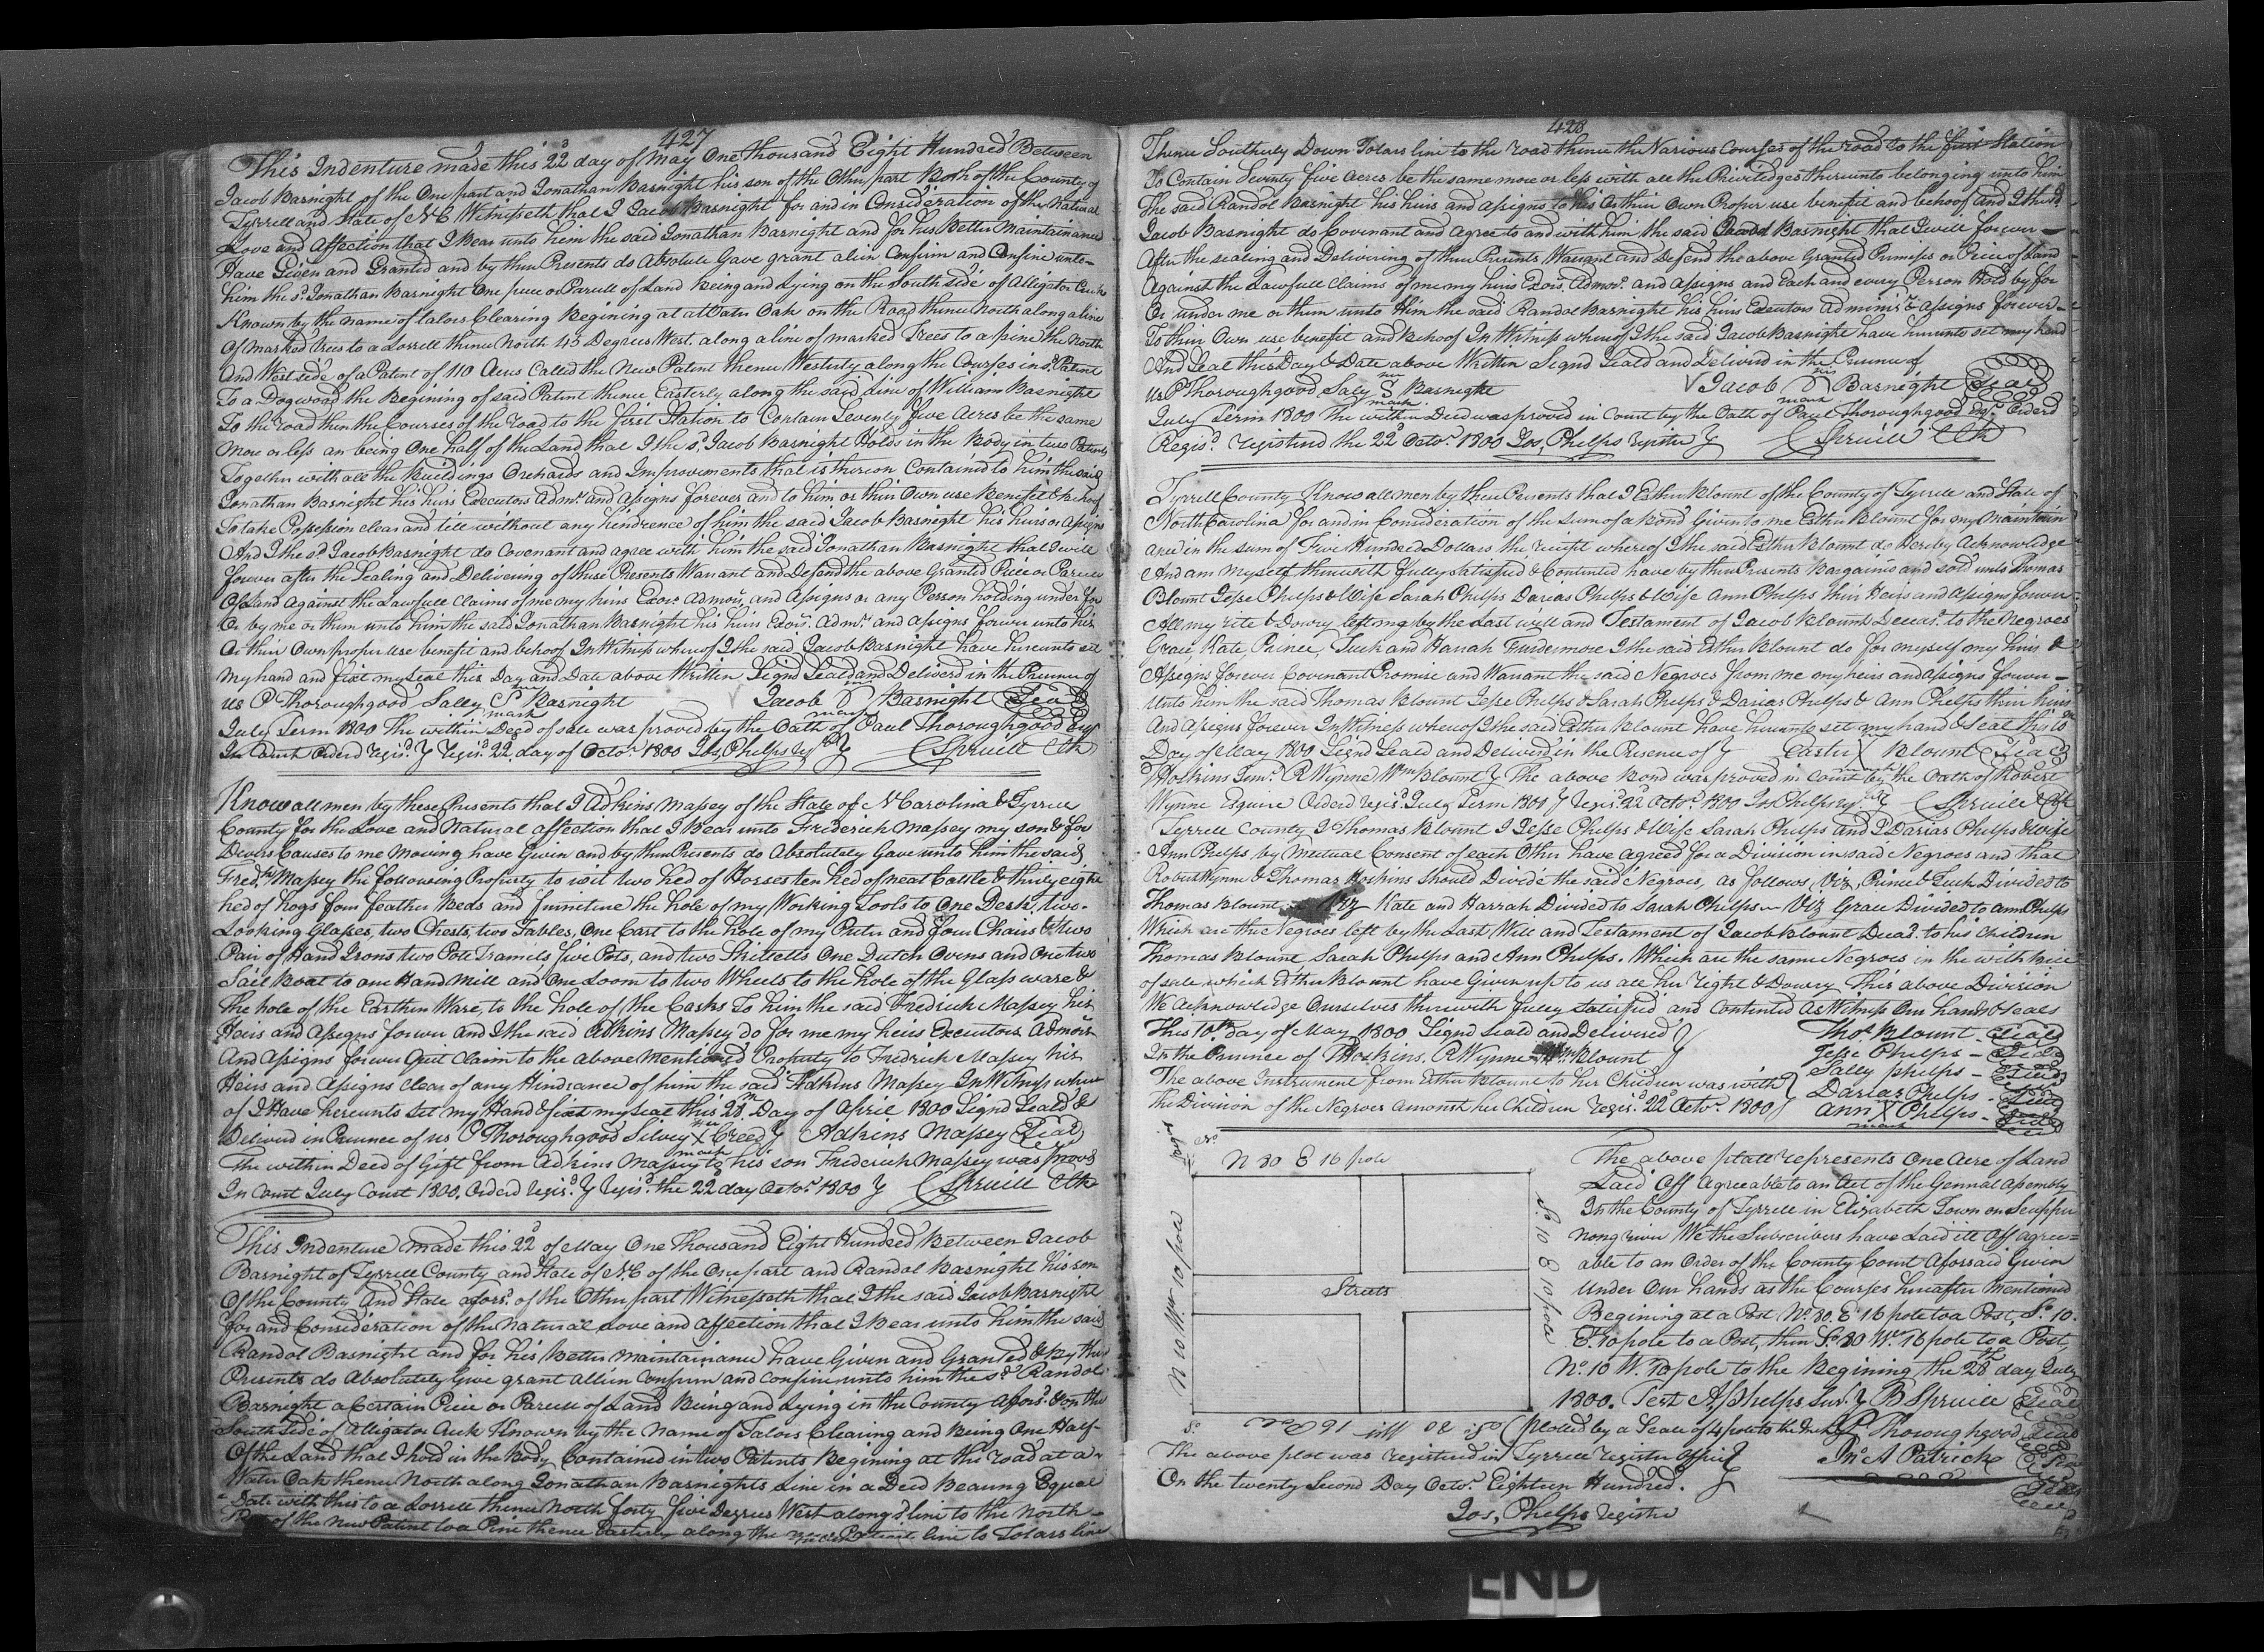 427
This Indenture made this 22d day of May One thousand Eight Hundred Between
Jacob Basnight of the One part and Jonathan Basnight his son of the Other part Both of the County of
Tyrrell and State of N C Witnesseth that I Jacob Basnight for and in Consideration of the Natural
Love and Affection that I Bear unto him the said Jonathan Basnight and for his Better Maintainance
Have Given and Granted and by these Presents do Absolute Gave grant alien Confirm and Confine unto
him the sd Jonathan Basnight One piece or Parcell of Land Being and Lying on the South side of Alligator Creek
Known by the name of Talors Clearing Begining at a Water Oak on the Road thence North along a line
Of Marked trees to a Sorrell thence North 45 Degrees West along a line of marked Trees to a pine the North
And West side of a Patent of 110 Acres Called the New Patent thence Westerly along the Courses in sd Patent
To a Dogwood the Begining of said Patent thence Easterly along the said Line of William Basnight
To the road then the Courses of the road to the first Station to Contain Seventy five Acres be the same
More or less an being One half of the Land that I the sd Jacob Basnight Holds in the Body in two Patents
Together with all the Buildings Orchards and Improvements that is thereon Contained to him the said
Jonathan Basnight his heirs Executors Admrs and Assigns forever and to him or their Own use Benefit & Behoof
To take Possession clear and till without any hindrence of him the said Jacob Basnight his heirs or Assigns
And I the sd Jacob Basnight do Covenant and agree with him the said Jonathan Basnight that I will
forever after the Sealing and Delivering of these Presents Warrant and Defend the above Granted Piece or Parcel
Of Land Against the Lawfull Claims of me my heirs Exors Admors and Assigns or any Person holding under for
Or by me or them unto him the said Jonathan Basnight his heirs Exors Admrs and Assigns forever unto his
Or their Own proper Use benefit and behoof In Witness whereof I the said Jacob Basnight have hereunto set
My hand and fixt my seal this Day and Date above Written Signd Seald and Deliverd in the Presence of
us P Thoroughgood Sally S her mark Basnight Jacob his mark Basnight Seal
July Term 1800 The within Deed of sale was proved by the Oath of Paul Thoroughgood Esqr
In Court Orderd regisd } Regisd 22 day of Octor 1800 Jos, Phelps regr } C Spruill Clk
Know all men by these Presents that I Adkins Massey of the State of N Carolina & Tyrrell
County for the Love and Natural affection that I Bear unto Frederick Massey my son & for
Divers Causes to me Moving have Given and by these Presents do Absolutely Gave unto him the said
Fredk Massey the following Property to wit two hed of Horses ten hed of neat Cattle & thirty eight
hed of hogs four feather Beds and furneture the hole of my Working tools to One Desk, two
Looking Glasses, two Chests, two Tables, One Cart to the hole of my Puter and four Chairs & two
Pair of Hand Irons two Pott Tramels five Pots, and two Skilletts One Dutch Ovens and One two
Sail Boat to one Hand Mill and One Loom to two Wheels to the hole of the Glass ware &
the hole of the Earthen Ware, to the hole of the Casks To him the said Fredrick Massey his
Heirs and Assigns forever and I the said Adkins Massey do for me my heirs Executors Admors
And Assigns forever Quit Claim to the above mentioned Property to Fredrick Massey his
Heirs and Assigns clear of any Hindrance of him the said Adkins Massey In Witness where
of I Have hereunto set my Hand & fixt my seal this 28th Day of April 1800 Signd Seald &
Deliverd in Presence of us P Thoroughgood Silvey X her mark Creed } Adkins Massey Seal
The within Deed of Gift from Adkins Massey to his son Frederick Massey was provd
In Court July Court 1800, Orderd regisd } Regisd the 22d day Octor 1800 } C Spruill Clk
This Indenture made this 22d of May One Thousand Eight Hundred Between Jacob
Basnight of Tyrrell County and State of N.C of the One part and Randal Basnight his son
Of the County and State aforsd of the Other part Witnesseth that I the said Jacob Basnight
for and Consideration of the Natural Love and Affection that I Bear unto him the said
Randol Basnight and for his Better Maintainance have Given and Granted & By these
Presents do Absolutely Give grant allien Confirm and confine unto him the sd Randol
Basnight a Certain Piece or Parcell of Land Being and Lying in the County Aforsd & on the
South side of Alligator Creek Known by the Name of Talors Clearing and Being One Half
Of the Land that I hold in the Body Contained in two Patents Begining at the road at a
Water Oak thence North along Jonathan Basnights Line in a Deed Bearing Equal
Date with this to a Sorrell thence North forty five Degrees West along sd line to the North
of the New Patent to a Pine thence Easterly along the New Patent line to Tolars line
428
Thence Southerly Down Tolars line to the road thence the Various Courses of the road to the first Station
To Contain Seventy five Acres be the same more or less with all the Priviledges thereunto belonging unto him
The said Randol Basnight his heirs and assigns to his Or their Own Proper use benefit and behoof And I the sd
Jacob Basnight do Covenant and Agree to and with him the said Randol Basnight that I will forever
After the sealing and Delivering of these Presents Warrant and Defend the above Granted Premises or Piece of Land
Against the Lawfull Claims of me my heirs Exors Admors and Assigns and Each and every Person Hold by for
Or under me or them unto Him the said Randol Basnight his heirs Executors Adminrs & Assigns forever
To their Own use benefit and Behoof In Witness whereof I the said Jacob Basnight have hereunto set my hand
And Seal this Day & Date above Written Signd Seald and Deliverd in the Presence of
us P Thoroughgood Saly S her mark Basnight Jacob his mark Basnight Seal
July Term 1800 The within Deed was proved in Court by the Oath of Paul Thoroughgood Esqr Orderd
Regisd registered the 22d Octor 1800 Jos, Phelps register } C Spruill Clk
Tyrrell County Know all men by these Presents that I Esther Blount of the County of Tyrrell and State of
North Carolina for and in Consideration of the Sum of a Bond Given to me Esther Blount for my Maintain
ance in the sum of Five Hundred Dollars the receipt whereof I the said Esther Blount do Hereby Acknowledge
And am Myself therewith fully satisfied & Contented have by these Presents Bargained and sold unto Thomas
Blount Jesse Phelps & Wife Sarah Phelps Darias Phelps & Wife Ann Phelps their Heirs and Assigns forever
All my rite & Dowry left me by the Last will and Testament of Jacob Blount Deceasd to the Negroes
Grace, Kate, Prince, Tuck and Harrah Furdermore I the said Esther Blount do for myself my heirs &
Assigns forever Covenant Promise and Warrant the said Negroes from me my heirs and Assigns forever
Unto him the said Thomas Blount Jesse Phelps & Sarah Phelps & Darias Phelps & Ann Phelps their heirs
And Assigns forever In Witness whereof I the said Esther Blount have hereunto set my hand & Seal this 10th
Day of May 1800 Signd Seald and Deliverd in the Presence of } Easter X her mark Blount Seal
T Hoskins Senr R Wynne Wm Blount } The above Bond was proved in Court by the Oath of Robert
Wynne Esquire Orderd regisd July Term 1800 } Regisd 22d Octor 1800 Jos Phelps regr } C Spruill Clk
Tyrrell County I Thomas Blount I Jesse Phelps & Wife Sarah Phelps and I Darias Phelps & Wife
Ann Phelps by Mutual Consent of each Other have agreed for a Division in said Negroes and that
Robert Wynne & Thomas Hoskins should Divide the said Negroes, as follows, Viz, Prince & Tuck Divided to
Thomas Blount Viz Kate and Harrah Divided to Sarah Phelps Viz Grace Divided to Ann Phelps
Which are the Negroes left by the Last Will and Testament of Jacob Blount Deceasd to his Children
Thomas Blount Sarah Phelps and Ann Phelps. Which are the same Negroes in the with bill
of sale which Esther Blount have Given up to us all her right & Dowry This above Division
We Acknowledge Ourselves therewith fully satisfied and Contented As Witness Our hands & seals
This 10th Day of May 1800 Signd Seald and Deliverd }
In the Presence of T Hoskins, R Wynne Wm Blount }
Thos Blount Seal
Jesse Phelps Seal
Sally phelps Seal
Darias Phelps Seal
Ann X her mark Phelps Seal
The above Instrument from Esther Blount to her Children was with }
The Division of the Negroes Amonst her Children regisd 22d Octor 1800 }
No
N 30 E 16 pole
So 10 E 10 pole
Streets
N 10 W 10 pole
So
So 30 W 16 Pole
The above platt represents One Acre of Land
Laid Off Agreeable to an Act of the General Assembly
In the County of Tyrrell in Elizabeth Town on Scupper
nong river We the Subscribers have Laid itt Off agree=
able to an Order of the County Court Aforsaid Given
Under Our hands as the Courses hereafter Mentioned
Begining at a Post No 30. Et 16 pole to a Post, So 10.
Et 10 pole to a Post, then So 30 Wt 16 pole to a Post,
No 10 W. 10 pole to the Begining the 28th day July
1800. Test A, Phelps Sur. } B Spruill Seal
Plotted by a Scale of 4 pole to the Inch P. Thoroughgood Seal
Jno A Patrick Seal
The above plot was registered in Tyrrell register Office }
On the twenty Second Day Octor Eighteen Hundred. }
Jos, Phelps registr
END